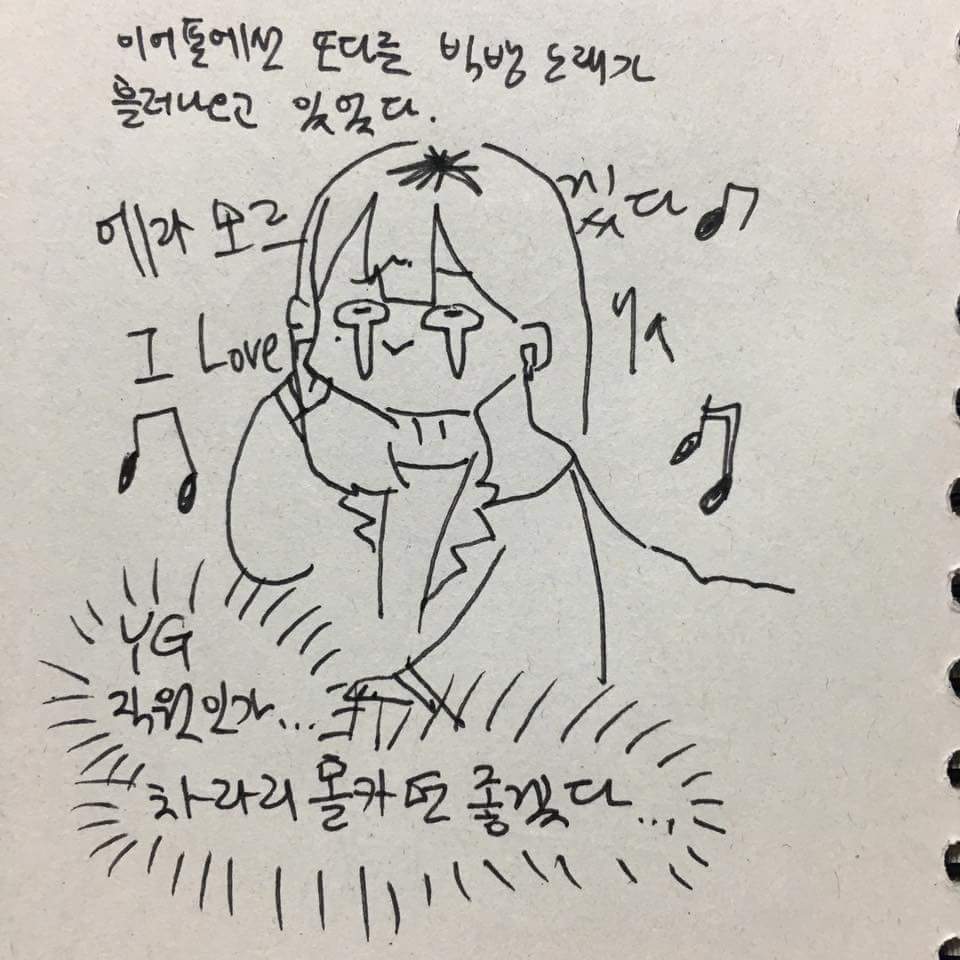 이어폴에선 또다른 빅뱅 노래가
흘러나오고 있었다.
에라 모르 겠다
I Love ya
YG
직원인가...
차라리 몰카면 좋겠다...